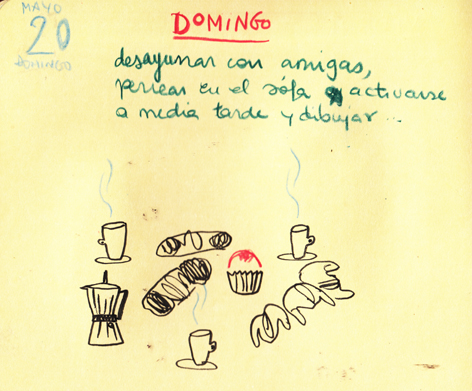 MAYO
20
DOMINGO
DOMINGO
desayunar con amigas,
perrear en el sófa activarse
a media tarde y dibujar...